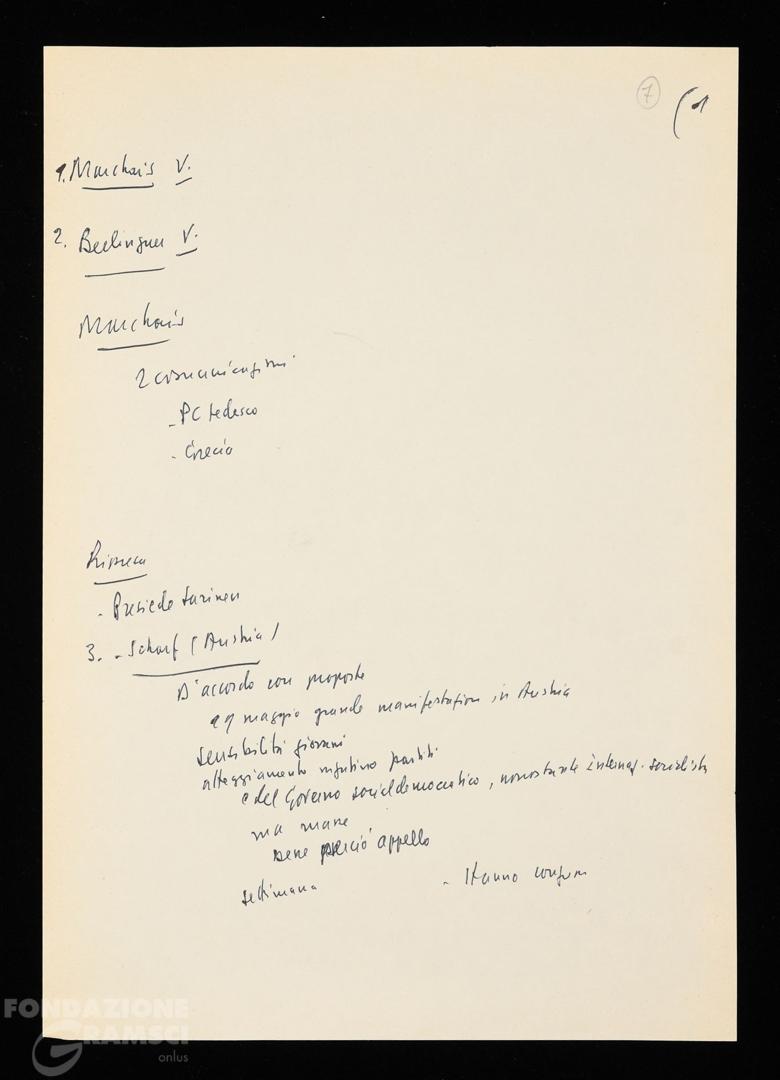 7
(1
1. Marchais V.
2. Berlinguer V.
Marchais
2 comunicazioni
- PC tedesco
- Grecia
Ripresa
- Presiede Sarinen
3. - Scharf (Austria)
D'accordo con proposte
maggio grande manifestazione in Austria
sensibilità giovani
atteggiamento negativo partiti
e del Governo socialdemocratico, nonostante internaz. socialista
ma
bene perciò appello
settimana - Hanno
FONDAZIONE
GRAMSCI
onlus